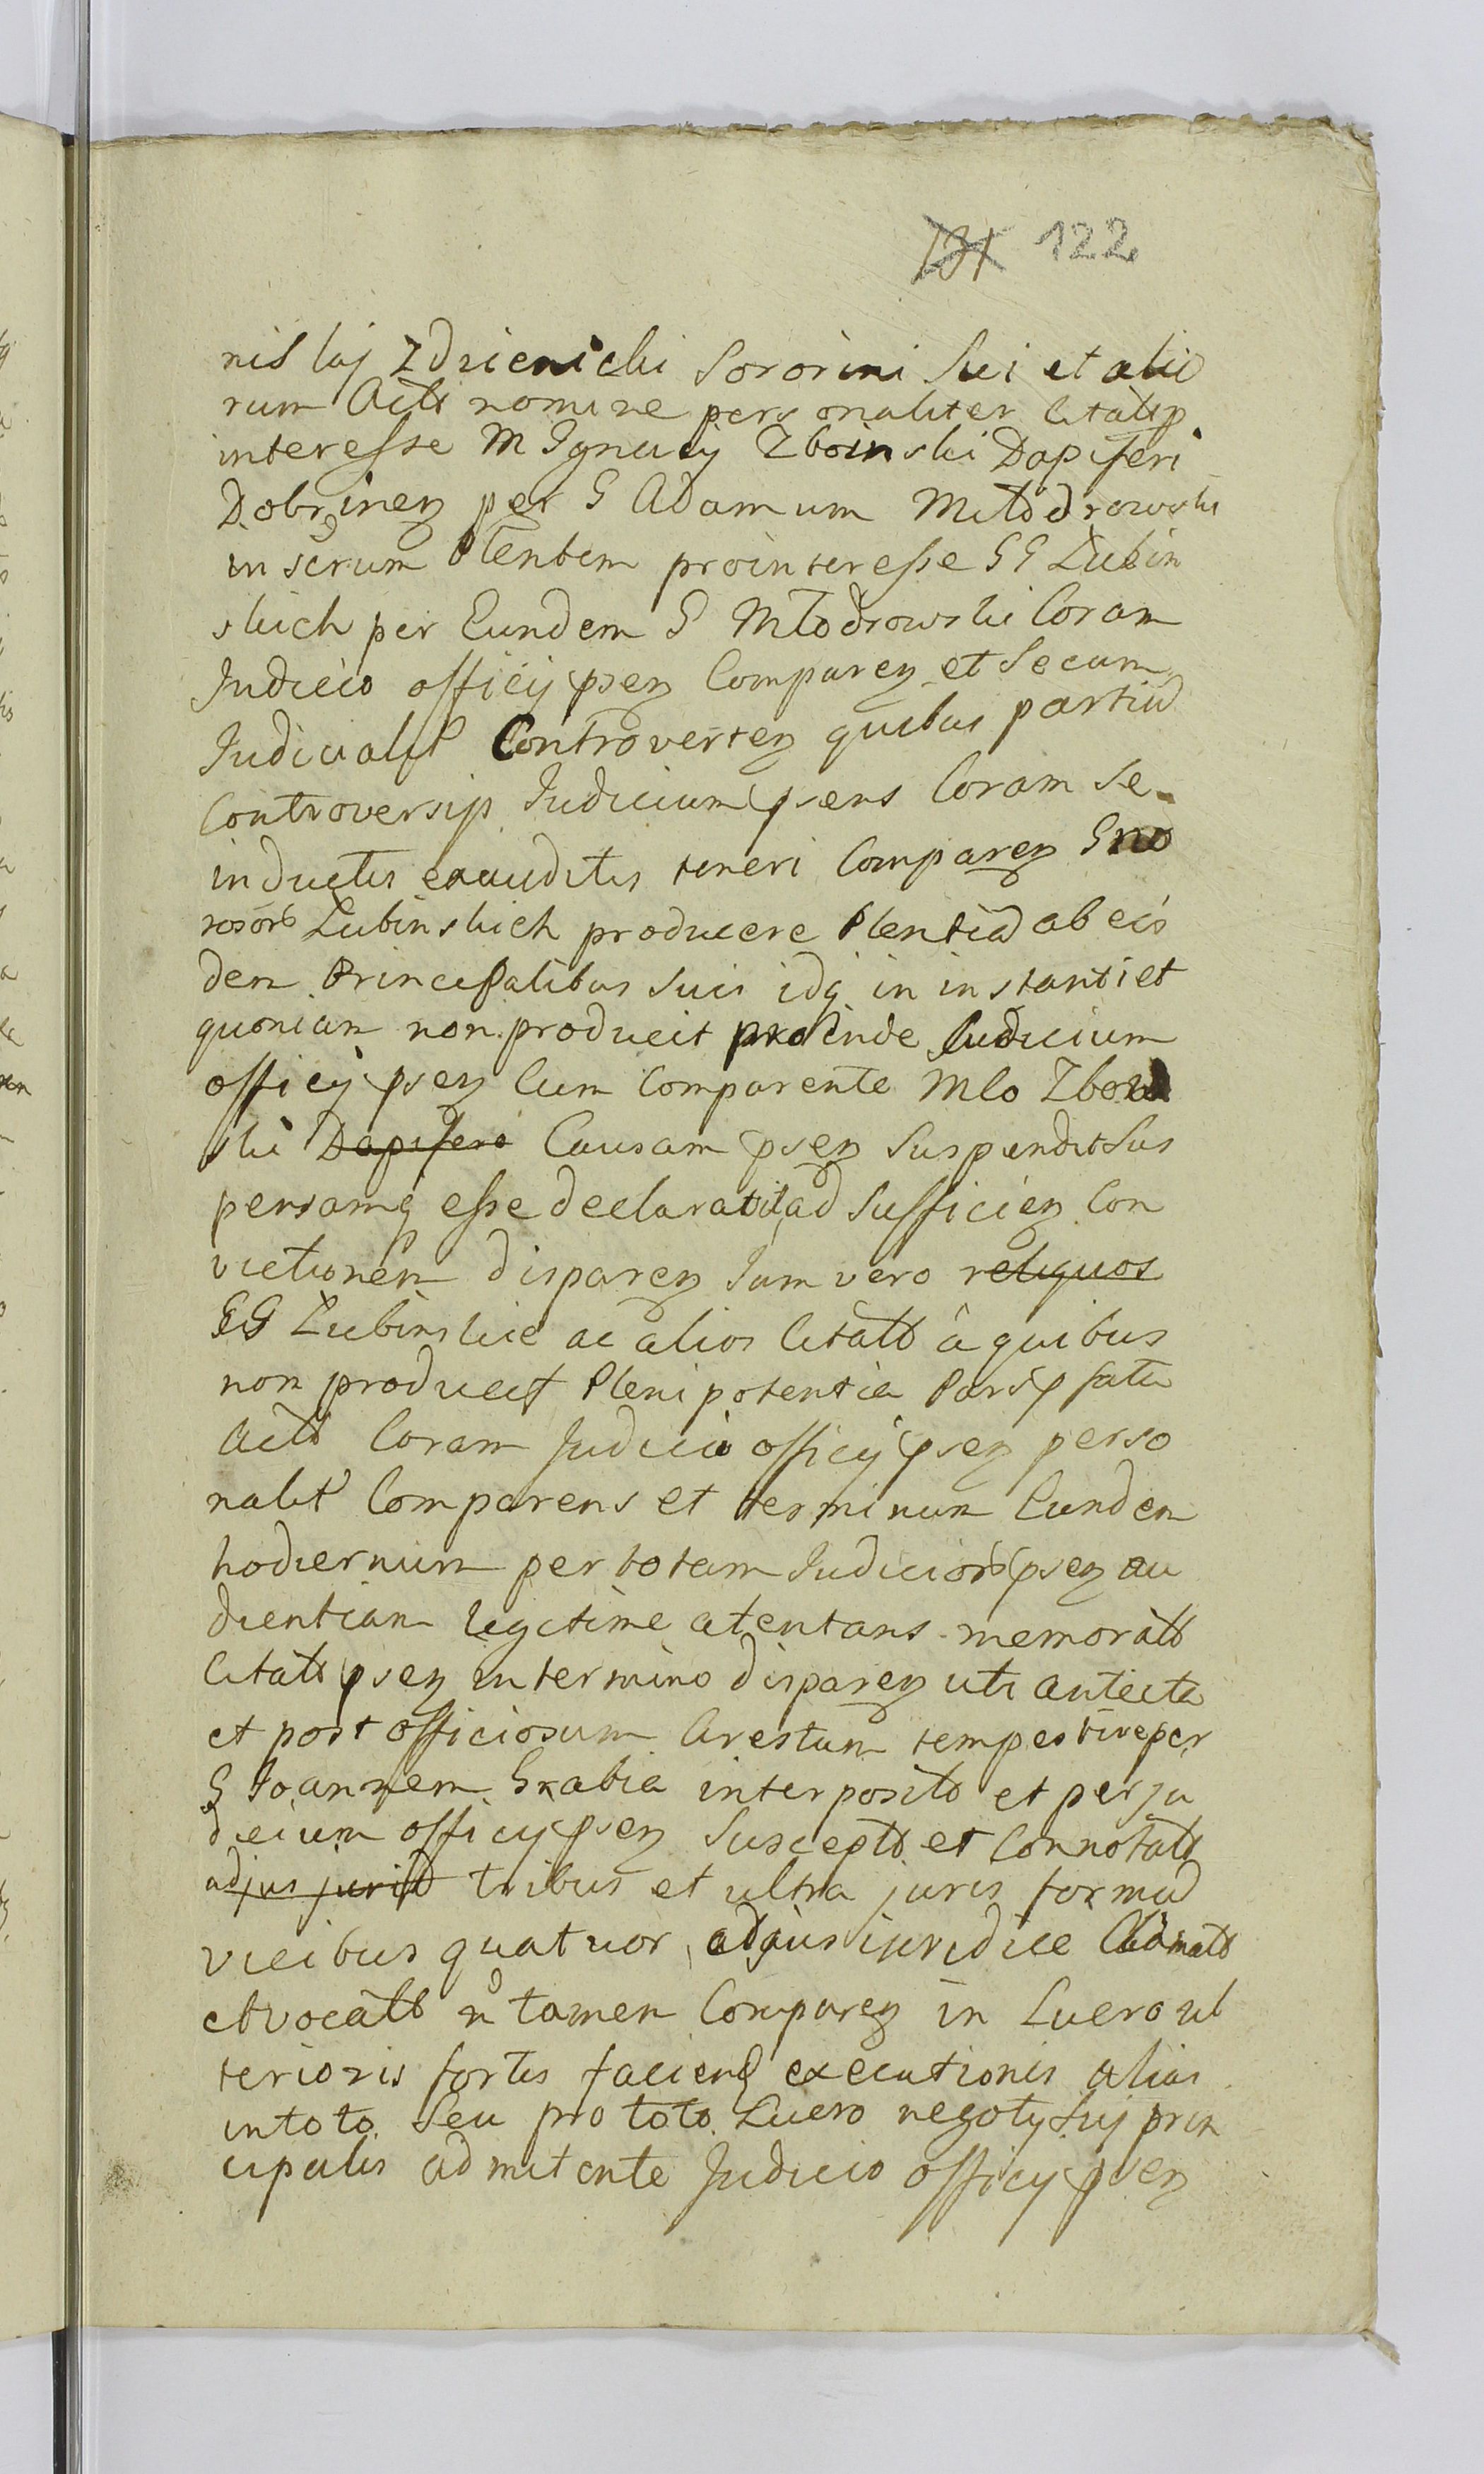 131 122
nislai Zdzienicki Sororini Sui et alio
rum Actt nomine personaliter Citatt p
interesse M Ignacij Zboinski Dapiferi
Dobrinen per G Adamum Młodrowski
in scrum Plentem pro interesse GG Łubin
skich per Eundem G Młodrowski Coram
Judicio officij psen Comparen et Secum
Judicialit Controverten quibus partiu
Controversijs Judicium psens Coram Se
inductis exauditis teneri Comparen Gno
rosor Łubinskich producere Plentia ab eis
dem Principalibus Suis idq in instanti et
quoniam non producit proinde Iudicium
officij psen Cum Comparente Mlo Zboin
ski Dapifero Causam psen Suspendit Sus
pensamq esse declaravit ad Sufficien Con
victionem disparen Iam vero reliquos
GG Łubinskie ac alios Citatt a quibus
non producit Plenipotentia Pars pfata
Actt Coram Judicio officij psen perso
nalit Comparens et terminum Eundem
hodiernum per totam Judicior psen au
dientiam legitime atentans memoratt
Citatt psen in termino disparen uti antecta
et post officiosum Arestum tempestive per
G Joannem Grabia interposito et per Ju
dicium officij psen Susceptt et Connotatt
ad jus jurid tribus et ultra juris formad
vicibus quatuor ad jus iuridice Clamatt
et vocatt n tamen Comparen in Lucro ul
terioris fortis faciend executionis alias
in toto Seu pro toto Lucro negotij Sui prin
cipalis admitente Judicio officij psen